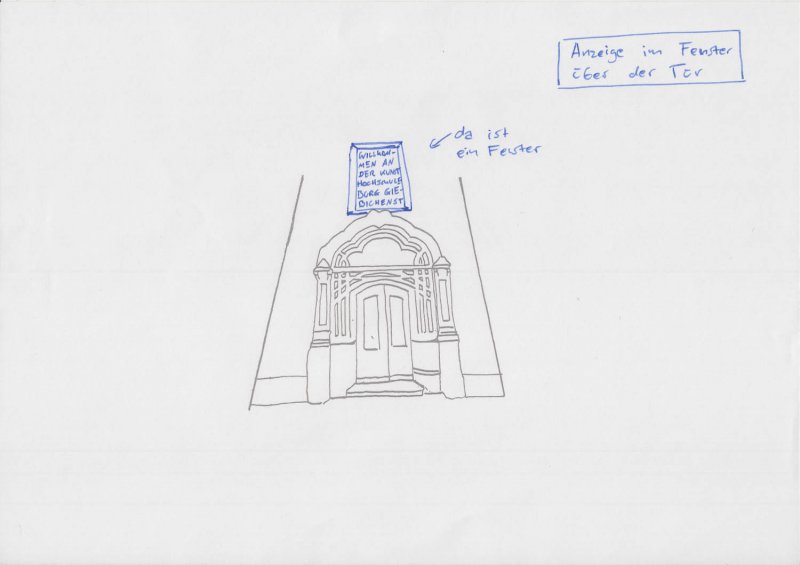 Anzeige im Fenster
über der Tür
da ist
ein Fenster
WILLKOM-
MEN AN
DER KUNST
HOCHSCHULE
BURG GIE-
BICHENST